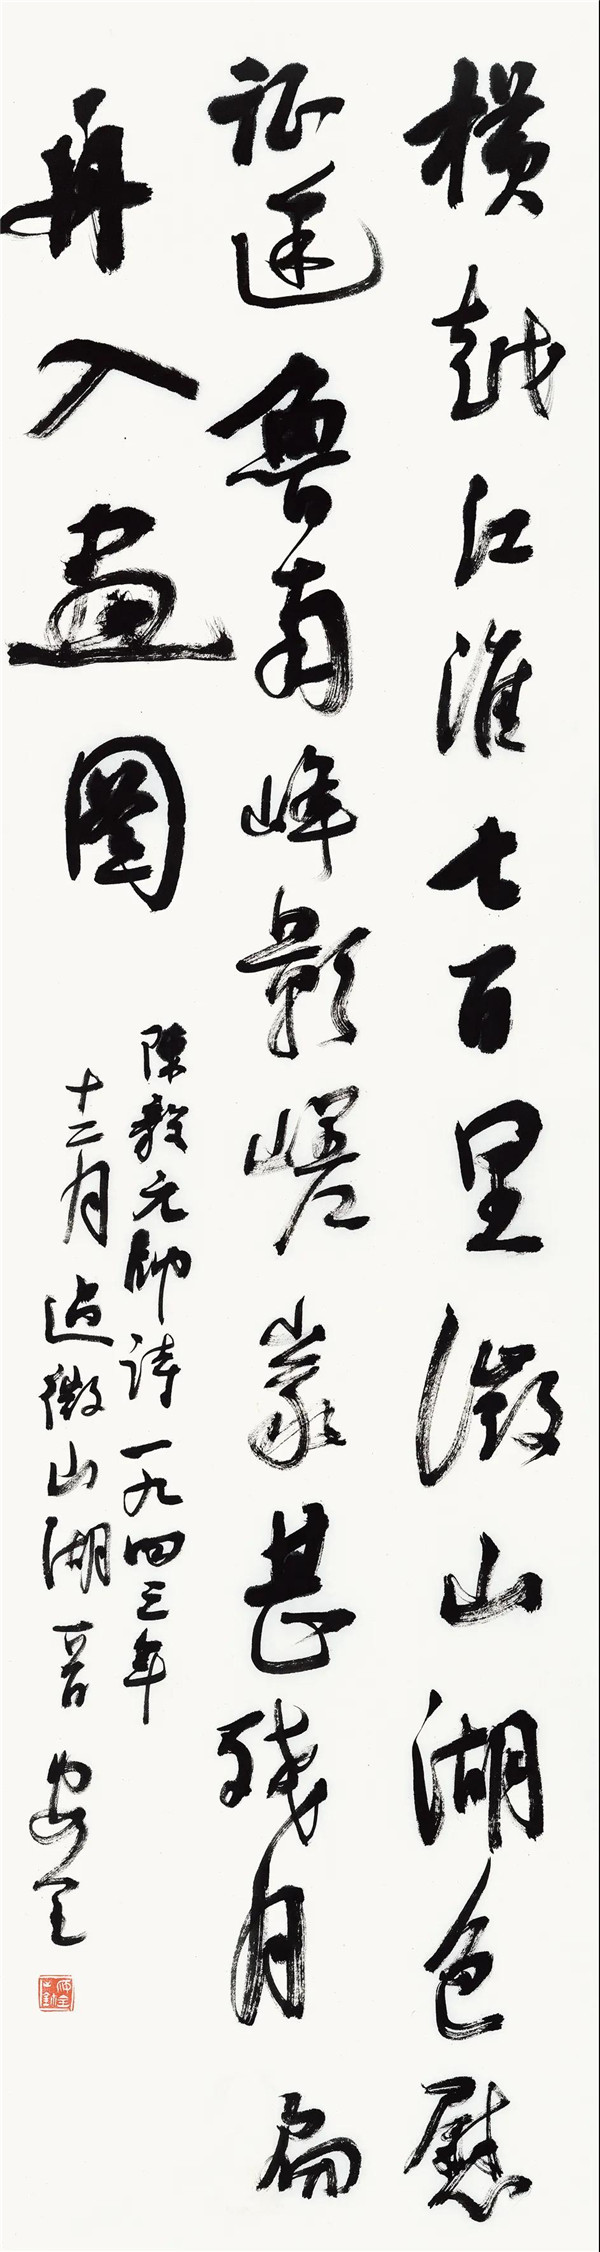 横越江淮七百里微山湖色慰
征途魯南峰影嵯峩甚残月扁
舟入畫圖
陳毅元帥诗一九四三年
十二月過微山湖